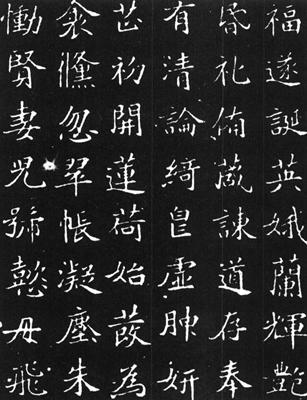 福遂誕英娥蘭輝豔
昏礼備葴諫道存奉
有清論綺虛妍
芷初開蓮荷始發為
衾儵忽翠帳凝塵朱
慟賢妻兒號懿母飛